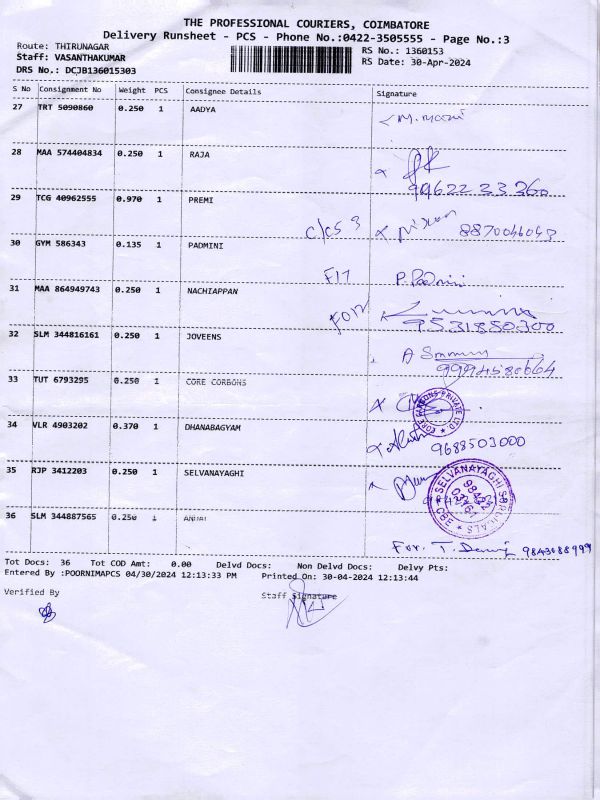 THE PROFESSIONAL COURIERS, COIMBATORE
Delivery Runsheet - PCS - Phone No.:0422-3505555 - Page No.:3
Route: THIRUNAGAR
RS No.: 1360153
Staff: VASANTHAKUMAR
RS Date: 30-Apr-2024
DRS No.: DCJB136015303
S No Consignment No Weight PCS Consignee Details Signature
27 TRT 5090860 0.250 1 AADYA
28 MAA 574404834 0.250 1 RAJA
29 TCG 40962555 0.970 1 PREMI
8870046043
30 GYM 586343 0.135 1 PADMINI
P. Padmini
31 MAA 864949743 0.250 1 NACHIAPPAN
For
9531850300
32 SLM 344816161 0.250 1 JOVEENS
33 TUT 6793295 0.250 1 CORE CORBONS
34 VLR 4903202 0.370 1 DHANABAGYAM
9688503000
35 RJP 3412203 0.250 1 SELVANAYAGHI
SELVANAYAGHI
CBE
36 SLM 344887565 0.250 1
For. T. 9843088999
Tot Docs: 36 Tot COD Amt: 0.00 Delvd Docs: Non Delvd Docs: Delvy Pts:
Entered By :POORNIMAPCS 04/30/2024 12:13:33 PM Printed On: 30-04-2024 12:13:44
Verified By
Staff Signature